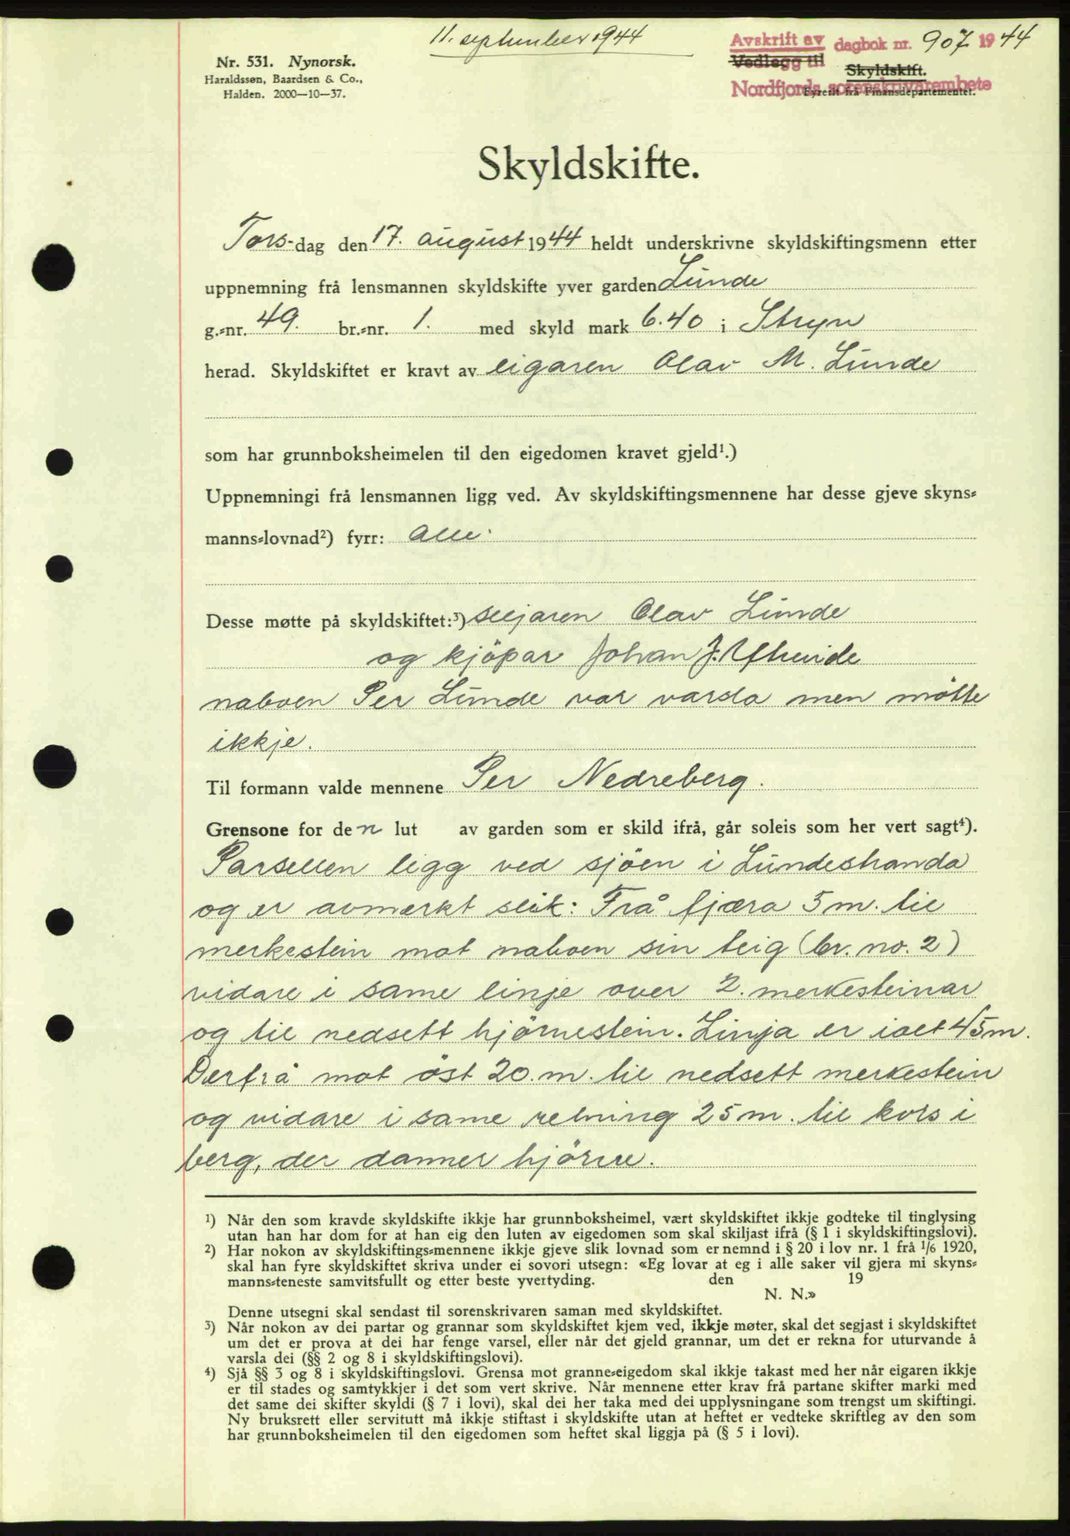 11. september 1944
Avskrift av dagbok nr. 907 1944
Vedlegg til
Skyldskift.
Nordfjords sorenskrivarembete
Fyreilt frå Finansdepartementet.
Nr. 531. Nynorsk.
Haraldssøn, Baardsen & Co.,
Halden. 2000—10—37.
Skyldskifte.
Tors-dag den 17. august 1944 heldt underskrivne skyldskiftingsmenn etter
uppnemning frå lensmannen skyldskifte yver garden Lunde
g.-nr. 49. br.-nr. 1. med skyld mark 6.40 i Stryn
herad. Skyldskiftet er kravt av eigaren Olav M. Lunde
som har grunnboksheimelen til den eigedomen kravet gjeld¹.)
Uppnemningi frå lensmannen ligg ved. Av skyldskiftingsmennene har desse gjeve skyns-
manns-lovnad²) fyrr: alle.
Desse møtte på skyldskiftet:³) seljaren Olav Lunde
og kjöpar Johan J.
naboen Per Lunde var varsla men mötte
ikkje.
Til formann valde mennene Per Nedreberg.
Grensone for den lut av garden som er skild ifrå, går soleis som her vert sagt⁴).
Parsellen ligg ved sjöen i Lundestranda
og er avmerkt slik: Frå fjæra 5 m. til
merkestein mot naboen sin teig (br. no. 2)
vidare i same linje over 2. merkesteinar
og til nedsett hjörnestein. Linja er ialt 45 m.
Derfrå mot öst 20 m. til nedsett merkestein
og vidare i same retning 25 m. til kors i
berg, der danner hjörne.
¹) Når den som kravde skyldskifte ikkje har grunnboksheimel, vært skyldskiftet ikkje godteke til tinglysing
utan han har dom for at han eig den luten av eigedomen som skal skiljast ifrå (§ 1 i skyldskiftingslovi).
²) Har nokon av skyldskiftings-mennene ikkje gjeve slik lovnad som er nemnd i § 20 i lov nr. 1 frå 1/6 1920,
skal han fyre skyldskiftet skriva under ei sovori utsegn: «Eg lovar at eg i alle saker vil gjera mi skyns-
manns-teneste samvitsfullt og etter beste yvertyding. den 19
N. N.»
Denne utsegni skal sendast til sorenskrivaren saman med skyldskiftet.
³) Når nokon av dei partar og grannar som skyldskiftet kjem ved, ikkje møter, skal det segjast i skyldskiftet
um det er prova at dei har fenge varsel, eller når det gjeld grannar, um det er rekna for uturvande å
varsla dei (§§ 2 og 8 i skyldskiftingslovi).
⁴) Sjå §§ 3 og 8 i skyldskiftingslovi. Grensa mot granne-eigedom skal ikkje takast med her når eigaren ikkje
er til stades og samtykkjer i det som vert skrive. Når mennene etter krav frå partane skifter marki med
det same dei skifter skyldi (§ 7 i lovi), skal dei her taka med dei upplysningane som trengst um skiftingi.
Ny bruksrett eller servitutt må ikkje stiftast i skyldskifte utan at heftet er vedteke skriftleg av den som
har grunnboksheimelen til den eigedomen som heftet skal liggja på (§ 5 i lovi).